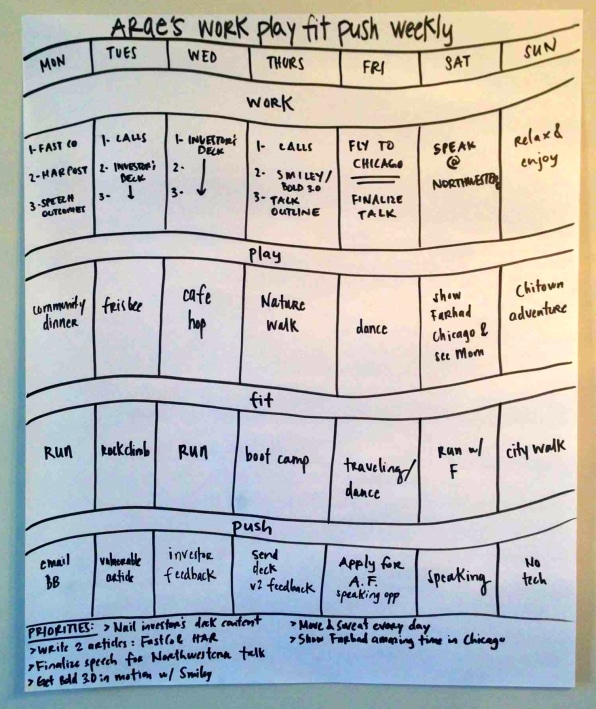 ARAE'S WORK play fit push weekly
MON TUES WED THURS FRI SAT SUN
WORK
1- FAST CO
2- HAR POST
3- SPEECH OUTCOMES
1- CALLS
2- INVESTOR'S DECK
3- ↓
1- INVESTOR'S DECK
2-
3- ↓
1- CALLS
2- SMILEY/ BOLD 3.0
3- TALK OUTLINE
FLY TO
CHICAGO
FINALIZE
TALK
SPEAK
@
NORTHWESTERN
Relax &
enjoy
play
community
dinner
frisbee
cafe
hop
Nature
walk
dance
show
Farhad
Chicago &
see Mom
Chitown
adventure
fit
RUN
Rockclimb
RUN
boot camp
traveling/
dance
RUN w/
F
city walk
push
email
BB
vulnerable
article
investor
feedback
send
deck
v2 feedback
Apply for
A.F.
speaking opp
speaking
No
tech
PRIORITIES: > Nail investor's deck content
> Write 2 articles: FastCo & HAR
> Finalize speech for Northwestern talk
> Get Bold 3.0 in motion w/ Smiley
> Move & sweat every day
> Show Farhad amazing time in Chicago